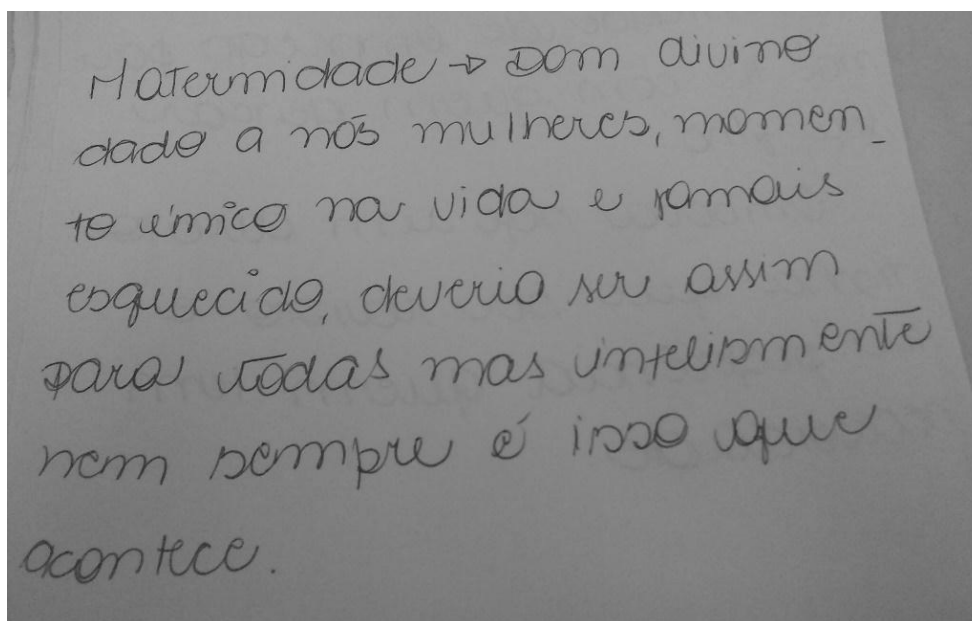 Maternidade → Dom divino
dado a nós mulheres, momen_
to único na vida e jamais
esquecido, deveria ser assim
para todas mas infelismente
nem sempre é isso que
acontece.